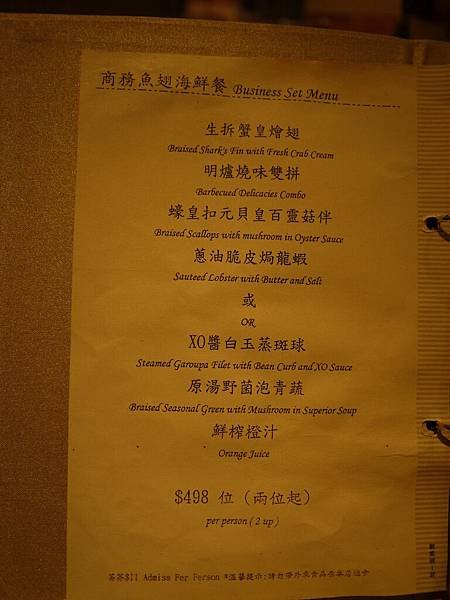 商務魚翅海鮮餐 Business Set Menu
生拆蟹皇燴翅
Braised Shark's Fin with Fresh Crab Cream
明爐燒味雙拼
Barbecued Delicacies Combo
蠔皇扣元貝皇百靈菇伴
Braised Scallops with mushroom in Oyster Sauce
蔥油脆皮焗龍蝦
Sauteed Lobster with Butter and Salt
或
OR
XO醬白玉蒸斑球
Steamed Garoupa Filet with Bean Curb and XO Sauce
原湯野菌泡青蔬
Braised Seasonal Green with Mushroom in Superior Soup
鮮榨橙汁
Orange Juice
$498 位 (兩位起)
per person ( 2 up )
茶芥$11 Admiss Per Person *溫馨提示:請勿帶外來食品在本店進食